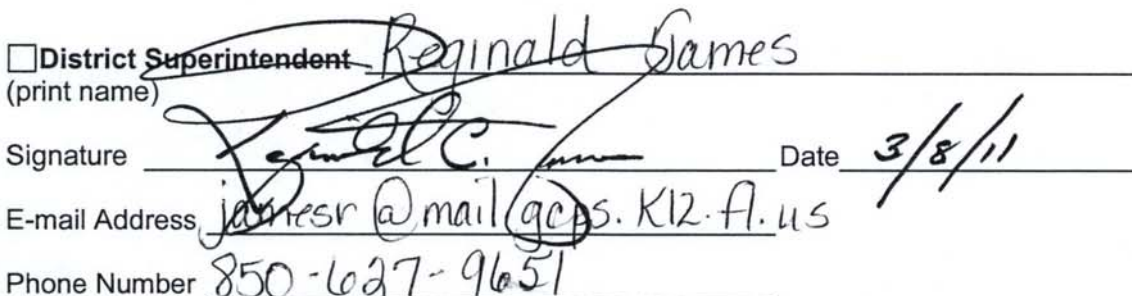 ☐District Superintendent Reginald James
(print name)
Signature Reginald C. James Date 3/8/11
E-mail Address jamesr@mail.gcps.k12.fl.us
Phone Number 850-627-9651